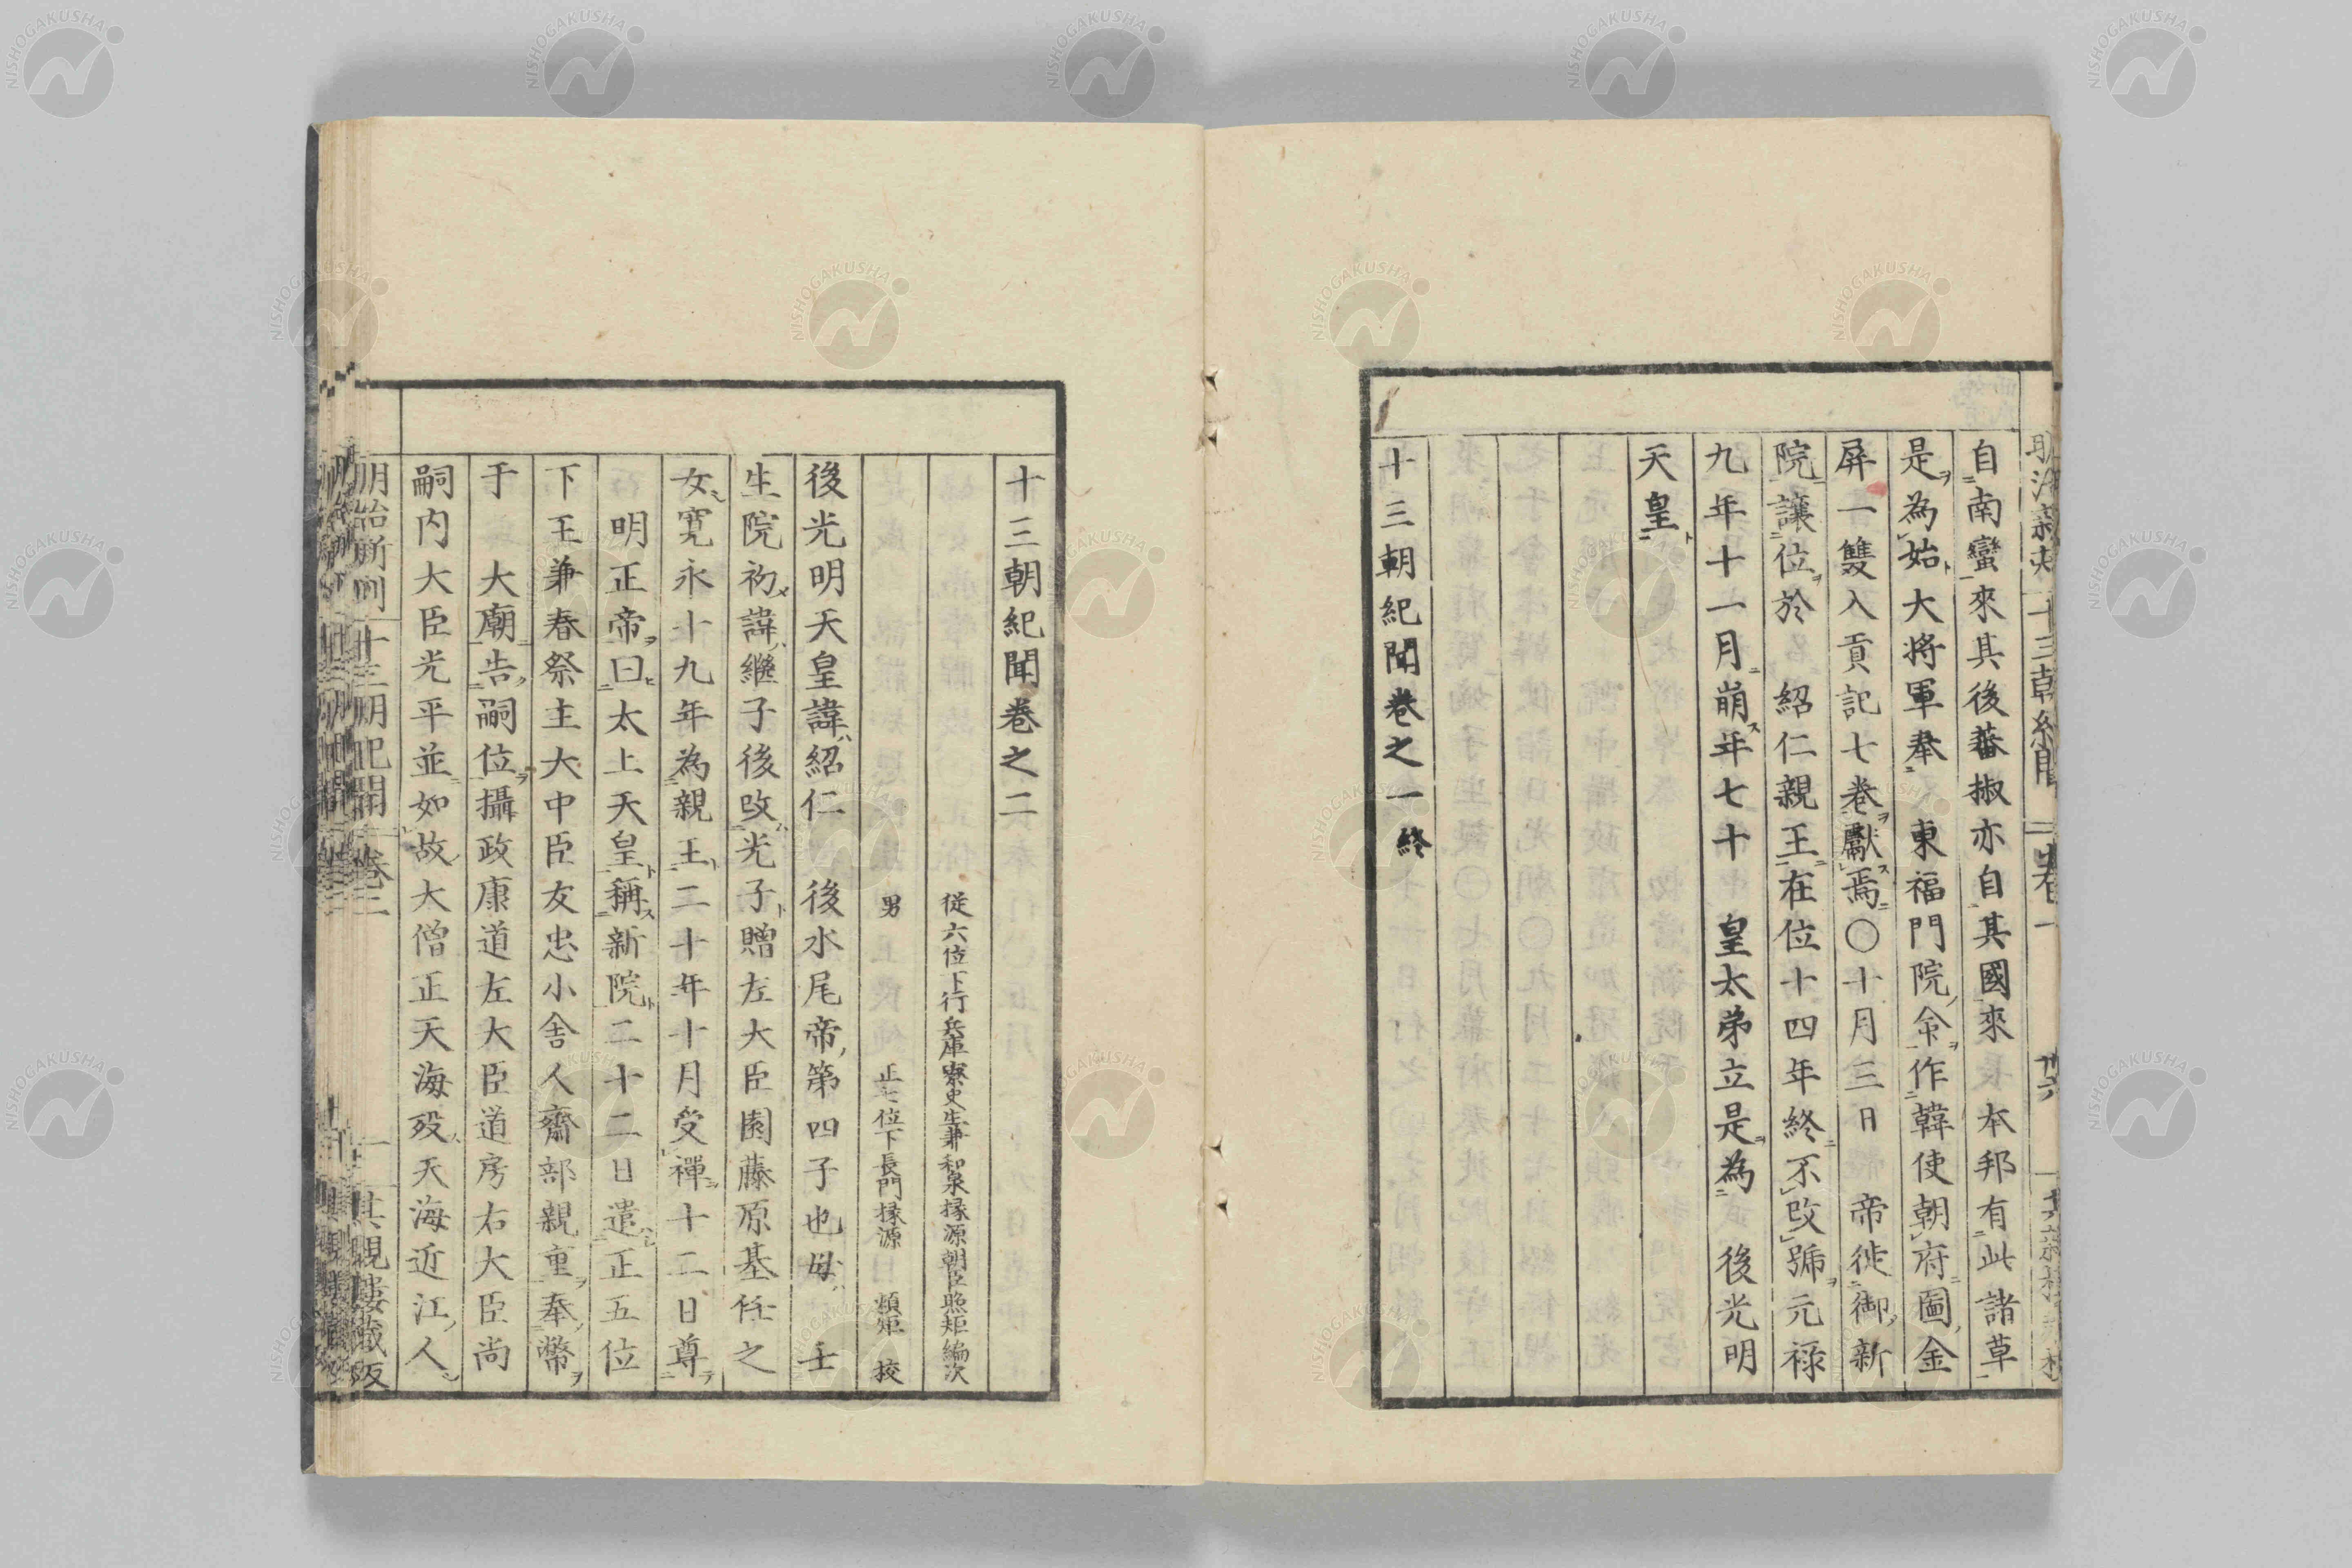 自南蠻來其後蕃椒亦自其國來長本邦有此諸草
是為始大將軍奉 東福門院命作韓使朝府圖金
屏一雙入貢記七卷獻焉〇十月三日 帝徙御新
院讓位於 紹仁親王在位十四年終不改號元祿
九年十一月崩年七十 皇太弟立是為 後光明
天皇
十三朝紀聞卷之一終
十三朝紀聞卷之二
從六位下行兵庫寮史生兼和泉掾源朝臣照矩編次
男 正七位下長門掾源 類矩 挍
後光明天皇諱紹仁 後水尾帝第四子也母 壬
生院初諱繼子後改光子贈左大臣園藤原基任之
女寬永十九年為親王二十年十月受禪十二日尊
明正帝曰太上天皇稱新院二十二日遣正五位
下王兼春祭主大中臣友忠小舍人齋部親重奉幣
于 大廟告嗣位攝政康道左大臣道房右大臣尚
嗣內大臣光平並如故大僧正天海歿天海近江人
明治新刻 十三朝紀聞 卷二 一 其親樓藏版
NISHOGAKUSHA